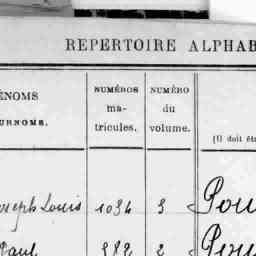 REPERTOIRE ALPHAB
ÉNOMS
URNOMS.
NUMÉROS
ma-
tricules.
NUMÉRO
du
volume.
(Il doit êt
oseph Louis 1034 3 Pou
Paul 282 2 Pou